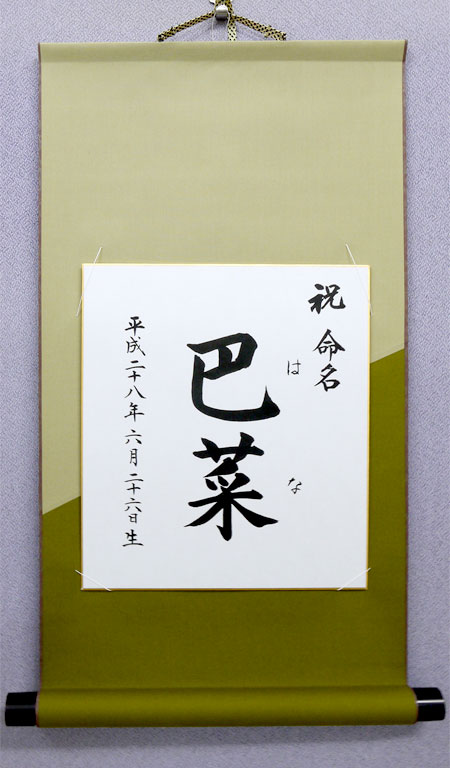 祝 命名
はな
巴菜
平成二十八年六月二十六日生